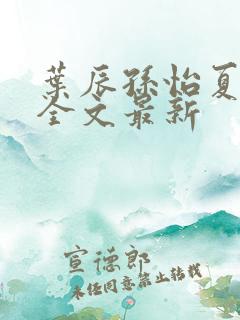 葉辰孫怡夏
全文最新
宣德郎
未经同意禁止转载